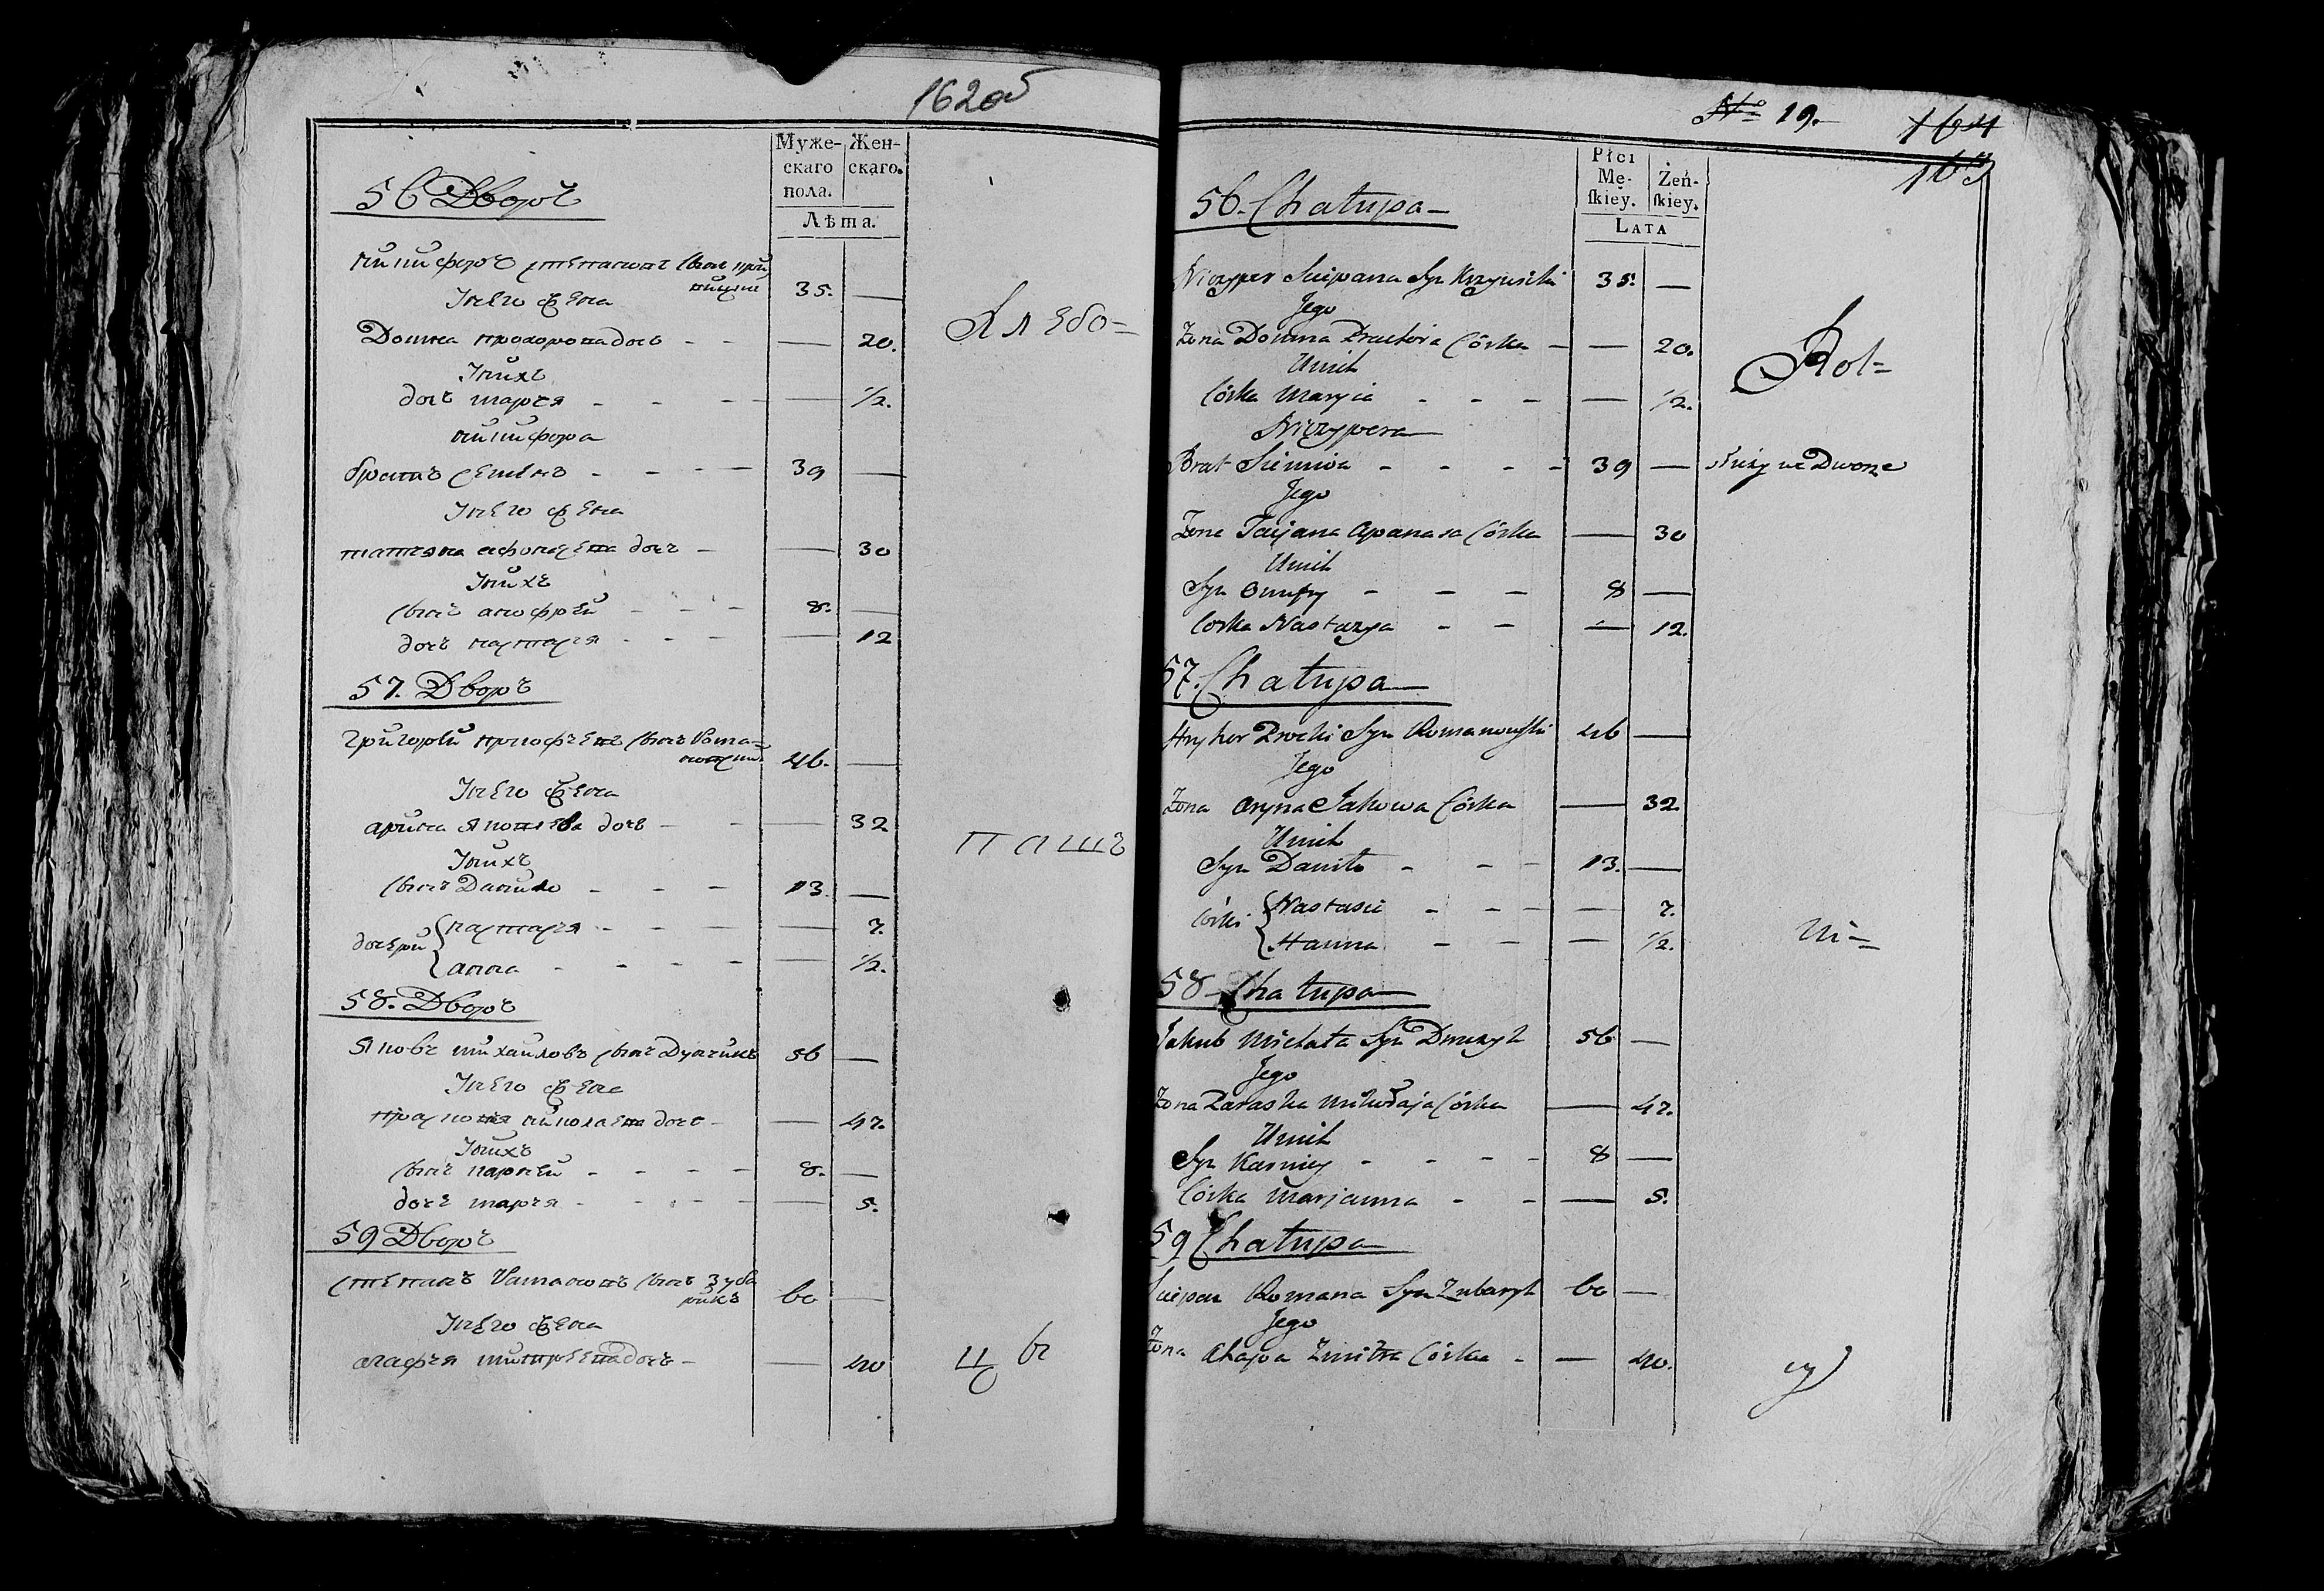 162об
Муже-
скаго
пола.
Жен-
скаго.
Лѣта.
56 Дворъ
никифоръ степановъ сынъ
Унего жена
35. —
Домна прохорова дочь - - — 20.
Унихъ
дочь марья - - - — 1/2.
никифора
братъ семенъ - - - - 39 —
Унего жена
татьяна афонасева дочь - — 30
Унихъ
сынъ анофрей - - - 8. —
дочь настасья - - - — 12
57. Дворъ
григорей прокофьевъ сынъ Рома-
новский
46. —
Унего жена
арина яковлева дочь - - — 32
Унихъ
сынъ Данило - - - 13. —
дочери
настасья - - - — 7.
анна - - - - — 1/2.
58. Дворъ
Яковъ михайловъ сынъ 56 —
Унего жена
прасковья николаева дочь - — 47.
Унихъ
сынъ карней - - - - 8. —
дочь марья - - - - — 5.
59 Дворъ
степанъ Романовъ сынъ Зуба
рикъ
60 —
Унего жена
агафья митрева дочь - — 40
Хлебо=
паш
цы
№ 19.
164
163
Płci
Mę-
ſkiey.
Żeń-
ſkiey.
LATA
56. Chałupa
Niczyper Sciepana Syn 35. —
Jego
Żona Domna Prachora Córka - — 20.
Unich
Córka Maryia - - - — 1/2.
Niczypera
Brat Siemion - - - - 39 — służy we Dworze
Jego
Żona Taijana Apanasa Córka — 30
Unich
Syn Onufry - - - 8 —
Córka Nastazya - - — 12.
57. Chałupa
Hryhor Procki Syn Romanowski 46 —
Jego
Żona Aryna Jakowa Córka — 32
Unich
Syn Daniło - - - 13. —
Córki
Nastasia - - - — 7.
Hanna - - — 1/2.
58 Chałupa
Jakub Michała Syn 56 —
Jego
Żona Paraska Mikołaja Córka — 47.
Unich
Syn Karniey - - - - 8 —
Córka Marjanna - - — 5.
59 Chałupa
Sciepan Romana Syn Zubaryk 60 —
Jego
Żona Ahapa Zmitra Córka - — 40.
Rol=
ni=
cy